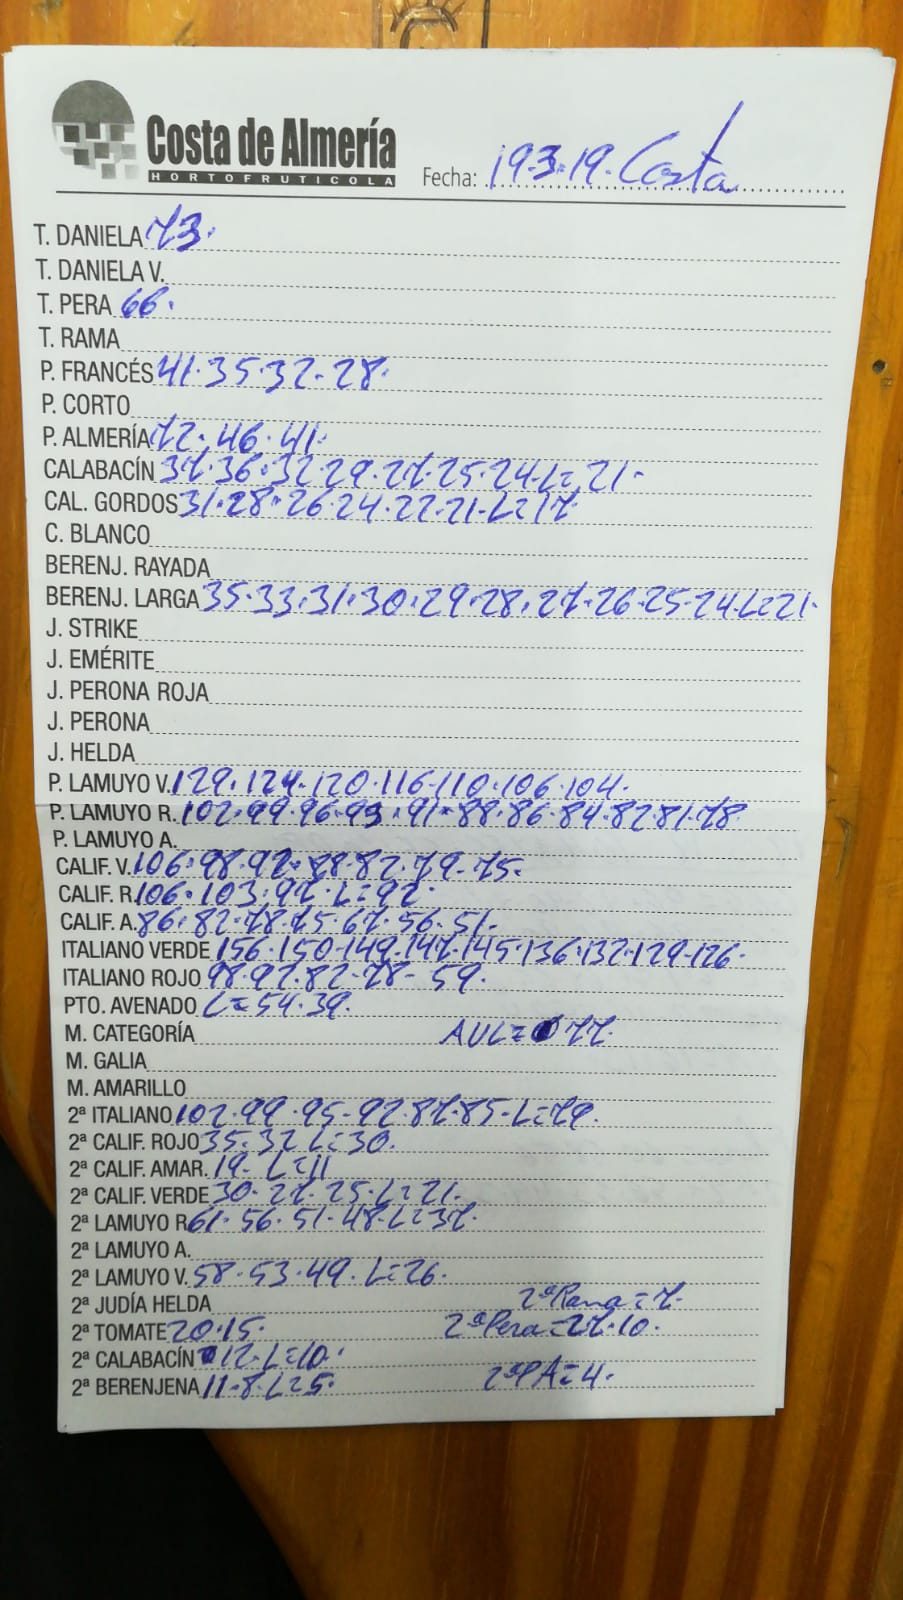 Costa de Almería
HORTOFRUTICOLA
Fecha: 19.3.19. Costa
T. DANIELA 73.
T. DANIELA V.
T. PERA 66.
T. RAMA
P. FRANCÉS 41.35.32.28.
P. CORTO
P. ALMERÍA 72.46.41.
CALABACÍN 37.36.32.29.27.25.24.L=21.
CAL. GORDOS 31.28.26.24.22.21.L=17.
C. BLANCO
BERENJ. RAYADA
BERENJ. LARGA 35.33.31.30.29.28.27.26.25.24.L=21.
J. STRIKE
J. EMÉRITE
J. PERONA ROJA
J. PERONA
J. HELDA
P. LAMUYO V. 129.124.120.116.110.106.104.
P. LAMUYO R. 102.99.96.93.91.88.86.84.82.81.78
P. LAMUYO A.
CALIF. V. 106.98.92.88.82.79.75.
CALIF. R. 106.103.97.L=92.
CALIF. A. 86.82.78.75.67.56.51.
ITALIANO VERDE 156.150.149.147.145.136.132.129.126.
ITALIANO ROJO 98.92.82.78.59.
PTO. AVENADO L=54.39.
M. CATEGORÍA AUL=77.
M. GALIA
M. AMARILLO
2ª ITALIANO 102.99.95.92.87.85.L=79.
2ª CALIF. ROJO 35.32.L=30.
2ª CALIF. AMAR. 19.L=11
2ª CALIF. VERDE 30.27.25.L=21.
2ª LAMUYO R 61.56.51.48.L=37.
2ª LAMUYO A.
2ª LAMUYO V. 58.53.49.L=26.
2ª JUDÍA HELDA 2ª Rama=7.
2ª TOMATE 20.15. 2ª Pera=27.10.
2ª CALABACÍN 12.L=10.
2ª BERENJENA 11.8.L=5. 2ª PA=4.